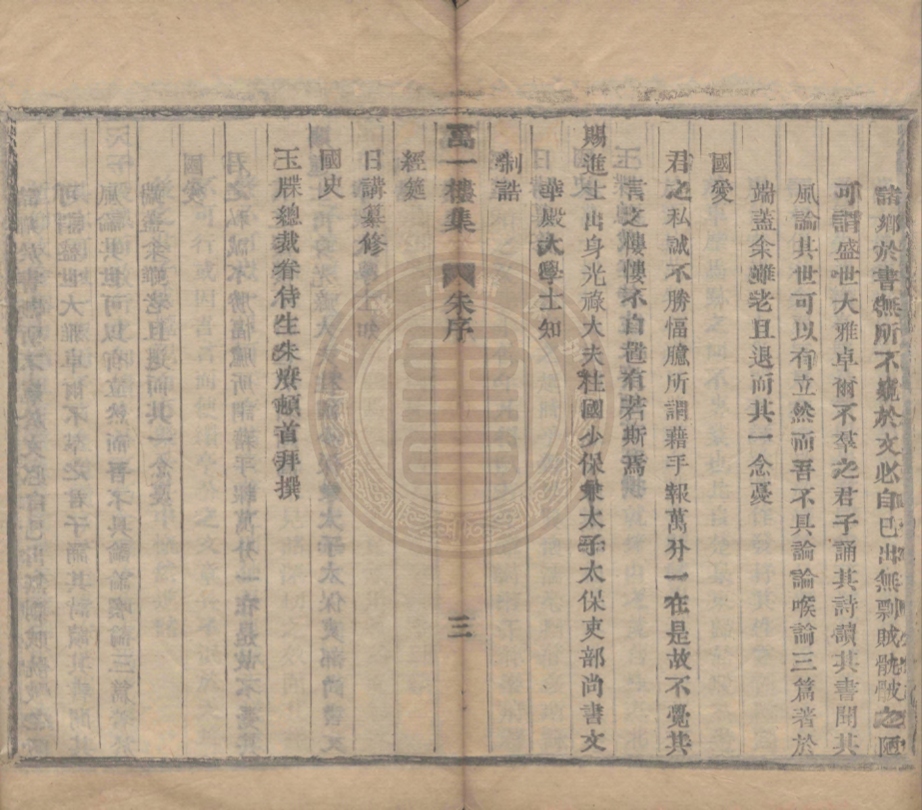 諸鄉於書無所不窺於文必自己出無剽賊骫骳之陋
可謂盛世大雅卓爾不羣之君子誦其詩讀其書聞其
風論其世可以有立然而吾不具論論喉論三篇著於
端蓋余雖老且退而其一念憂
國愛
君之私誠不勝愊臆所謂藉手報萬分一在是故不覺其
言之樓樓不自體有若斯焉
賜進士出身光祿大夫柱國少保兼太子太保吏部尚書文
華殿大學士知
制誥
經筵
日講纂修
國史
玉牒總裁眷侍生朱賡頓首拜撰
萬一樓集 朱序 三